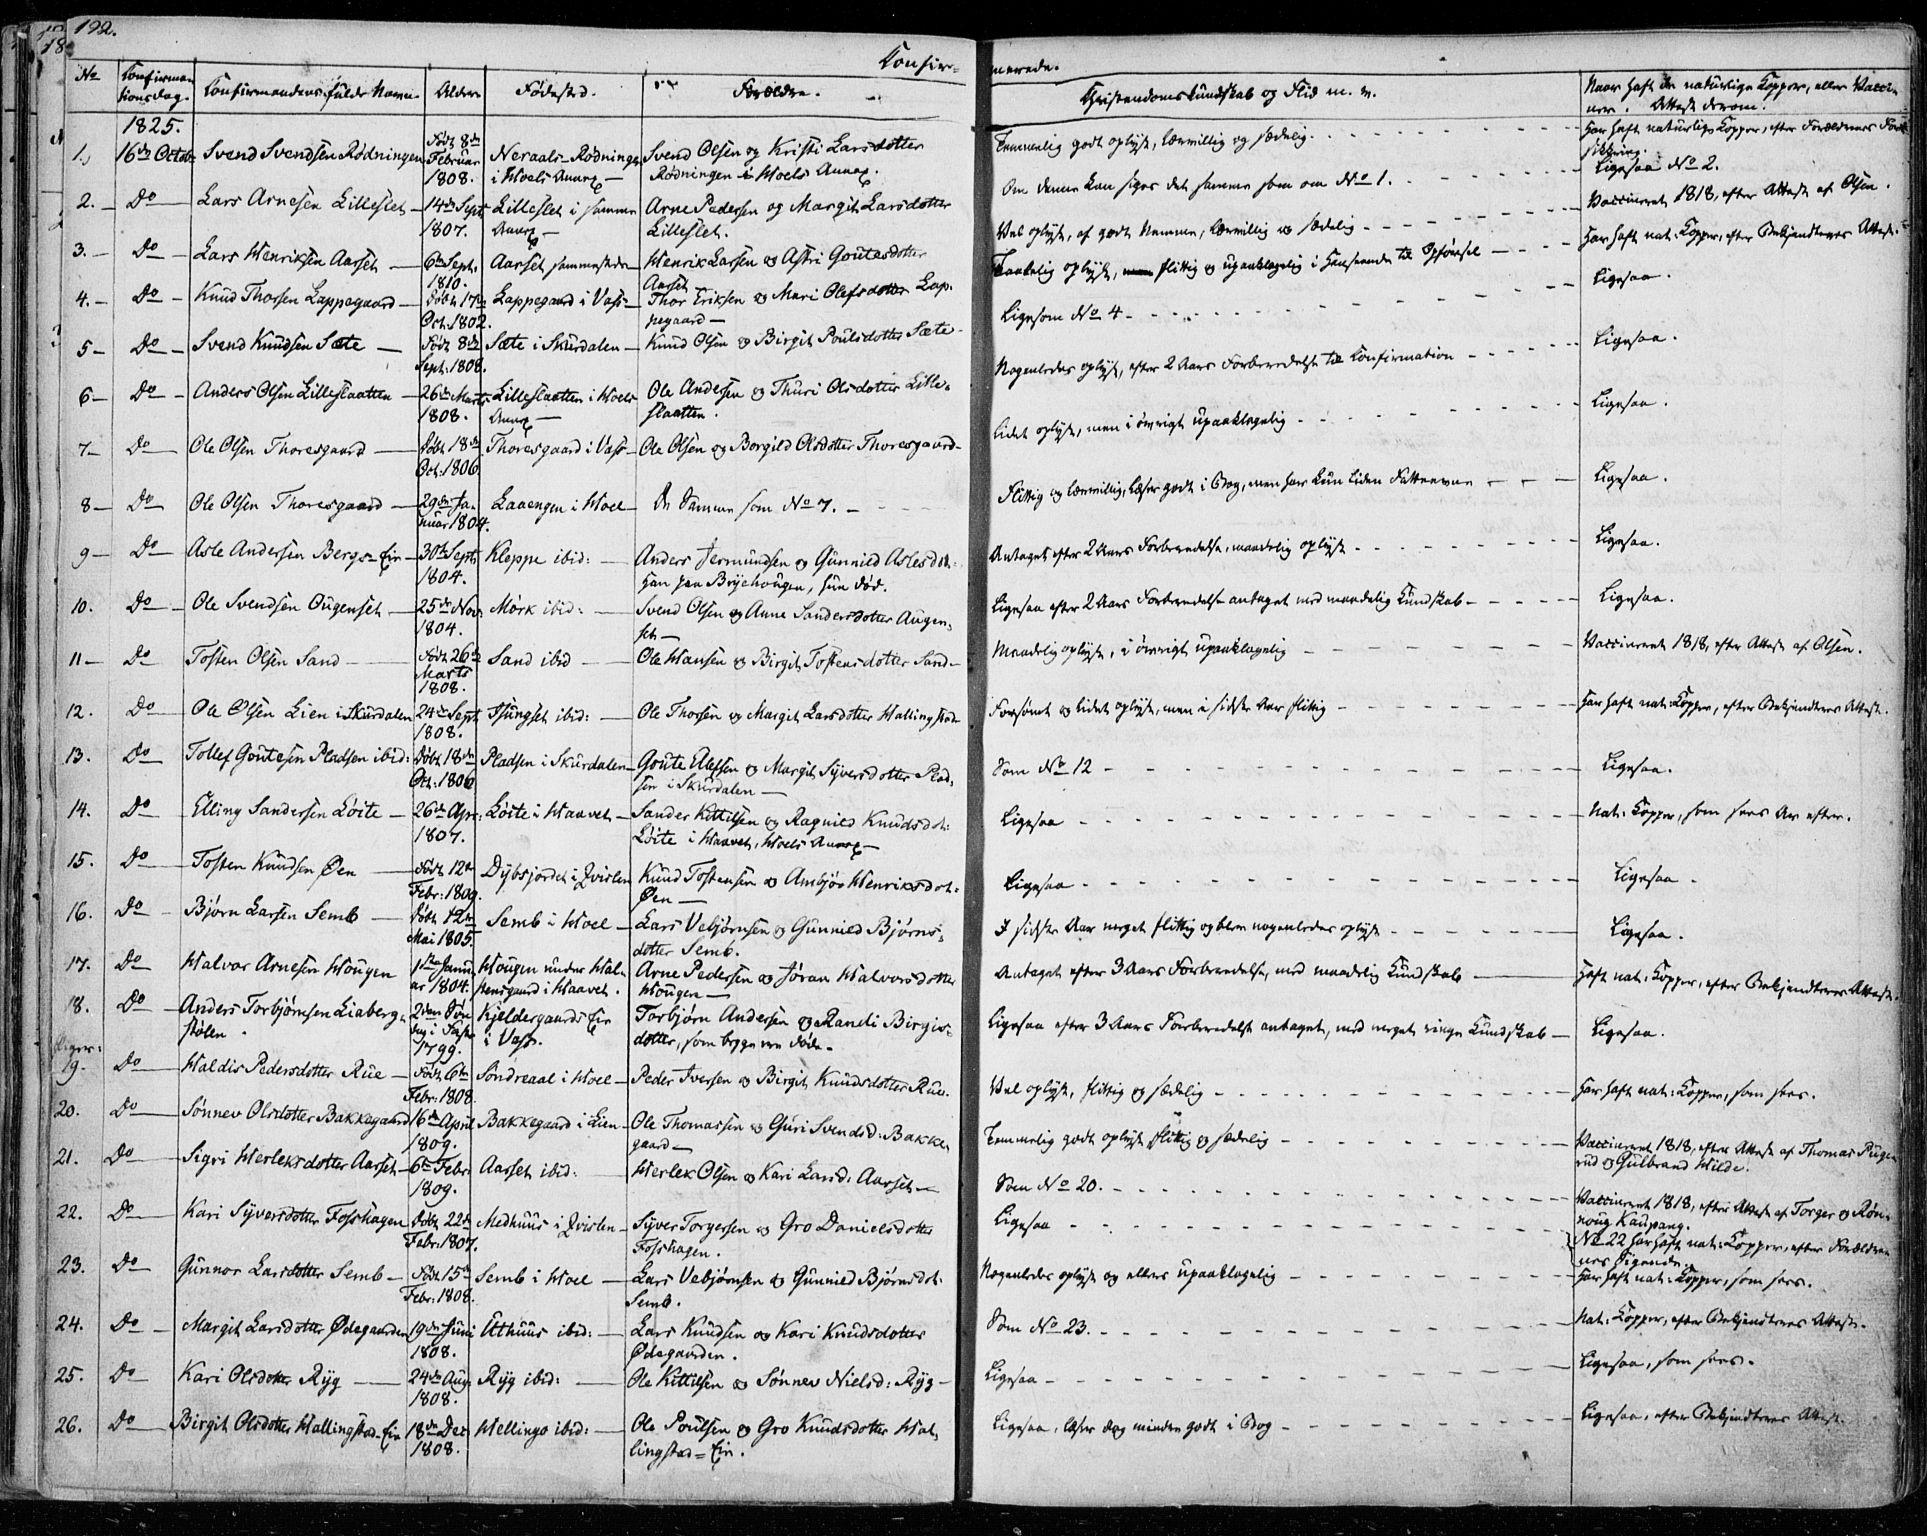 192.
Confir-
merede.
No
Confirma-
tionsdag.
Confirmandens fulde Navn.
Alder.
Fødested.
Forældre.
Christendoms Kundskab og Flid m. v.
Naar haft de naturlige Kopper, eller Vacci-
neret. Attest derom.
1825.
1. 16de Octobr Svend Svendsen Rødningen Født 8de Februar 1808. Neraals-Rødningen i Hoels Annex — Svend Olsen og Kristi Larsdotter Rødningen i Hoels Annex. Temmelig godt oplyst, lærvillig og sædelig. Har haft naturlige Kopper, efter Forældrenes Forsikkring.
2. Do Lars Arnesen Lilleslet 14de Sept. 1807. Lilleslet i samme Annex — Arne Pedersen og Margit Larsdotter Lilleslet. Om denne kan siges det samme som om No 1. Ligesaa No 2.
3. Do Lars Henriksen Aarset 6te Sept. 1810. Aarset sammesteds Henrik Larsen og Astri Goutesdotter Aarset Vel oplyst, af godt Nemme, lærvillig og sædelig Vaccineret 1818, efter Attest af Olsen.
4. Do Knud Thorsen Lappegaard Døbt 17de Oct. 1802. Lappegaard i Vass Thor Eriksen og Mari Olefsdotter Lappegaard — Taalelig oplyst, flittig og upaaklagelig i Henseende til Opførsel Har haft nat: Kopper, efter Bekjendteres Attest.
5 Do Svend Knudsen Sæte Født 8de Sept: 1808. Sæte i Skurdalen Knud Olsen og Birgit Poulsdotter Sæte Ligesom No 4 Ligesaa.
6 Do Anders Olsen Lilleslaatten 26de Marts 1808. Lilleslaatten i Hoels Annex — Ole Andersen og Thuri Olsdotter Lilleslaatten. Nogenledes oplyst, efter 2 Aars Forberedelse til Confirmation Ligesaa.
7 Do Ole Olsen Thoresgaard Døbt 18de Oct: 1806. Thoresgaard i Vass Ole Olsen og Borgild Olsdotter Thoresgaard Lidet oplyst, men i øvrigt upaaklagelig Ligesaa.
8 Do Ole Olsen Thoresgaard 29de Januar 1804. Laaengen i Hoel De Samme som No 7. Flittig og lærvillig, læser godt i Bog, men har kun liden Fatteevne Ligesaa.
9 Do Asle Andersen Bergs-Eie 30te Sept. 1804. Kleppe ibid: Anders Jermundsen og Gunnild Aslesdot: Han paa Bryehougen, hun død. Antaget efter 2 Aars Forberedelse, maadelig oplyst Ligesaa.
10. Do Ole Svendsen Ougenset 25de Nov. 1804. Mørk ibid: Svend Olsen og Anne Sandersdotter Augenset — Ligesaa efter 2 Aars Forberedelse antaget med maadelig Kundskab Ligesaa.
11 Do Tosten Olsen Sand Født 26de Marts 1808. Sand ibid Ole Hansen og Birgit Tostensdotter Sand Maadelig oplyst, i øvrigt upaaklagelig Vaccineret 1818, efter Attest af Olsen.
12. Do Ole Olsen Lien i Skurdalen 24de Sept 1808. Tjungset ibid: Ole Thorsen og Margit Larsdotter Hallingstad Forsømt og lidet oplyst, men i sidste Aar flittig Har haft nat: Kopper, efter Bekjendteres Attest.
13. Do Tollef Goutesen Pladsen ibid: Døbt 18de Oct: 1806 Pladsen i Skurdalen Goute Olefsen og Margit Syversdotter Pladsen i Skurdalen — Som No 12 Ligesaa.
14. Do Elling Sandersen Løite 26de Apr: 1807. Løite i Haavet Sander Kittilsen og Ragnild Knudsdot: Løite i Haavet, Hoels Annex — Ligesaa Nat: Kopper, som sees Ar efter.
15. Do Tosten Knudsen Øen Født 12te Febr: 1809. Dybsjordet i Qvislen Knud Tostensen og Ambjør Henriksdot: Øen — Ligesaa Ligesaa
16. Do Bjørn Larsen Semb Døbt 12te Mai 1805. Semb i Hoel Lars Vebjørnsen og Gunnild Bjørnsdotter Semb. I sidste Aar meget flittig og blev nogenledes oplyst Ligesaa.
17. Do Halvor Arnesen Hougen 1ste Januar 1804. Hougen under Halstensgaard i Haavet. Arne Pedersen og Jøran Halvorsdotter Hougen — Antaget efter 3 Aars Forberedelse, med maadelig Kundskab Haft nat: Kopper, efter Bekjendteres Attest.
18. Do Anders Torbjørnsen Liabergstølen. 2den Søndag i Faste 1799. Kjeldergaards Eie i Vass. Torbjørn Andersen og Randi Birgitsdotter, som begge ere døde. Ligesaa efter 3 Aars Forberedelse antaget, med meget ringe Kundskab Ligesaa.
Piger:
19. Do Haldis Pedersdotter Rue Født 6te Febr: 1808. Søndreaal i Hoel Peder Iversen og Birgit Knudsdotter Rue. Vel oplyst, flittig og sædelig Har haft nat: Kopper, som sees.
20. Do Sønnev Olsdotter Bakkegaard 16de April 1809. Bakkegaard i Lien Ole Thomassen og Guri Svendsd: Bakkegaard — Temmelig godt oplyst flittig og sædelig Vaccineret 1818, efter Attest af Thomas Pugerud og Gulbrand Hilde.
21. Do Sigri Herleksdotter Aarset 6te Febr. 1809. Aarset ibid: Herlek Olsen og Kari Larsd: Aarset Som No 20. Vaccineret 1818, efter Attest af Torger og Rønnoug Kaupang.
22. Do Kari Syversdotter Fosshagen Døbt 22de Febr: 1807. Medhuus i Qvislen Syver Torgersen og Gro Danielsdotter Fosshagen. Ligesaa No 22 har haft nat: Kopper, efter Forældrenes Sigende.
23. Do Gunnor Larsdotter Semb Født 15de Febr: 1808. Semb i Hoel Lars Vebjørnsen og Gunnild Bjørnsdot: Semb. Nogenledes oplyst og ellers upaaklagelig Har haft nat: Kopper, som sees.
24. Do Margit Larsdotter Ødegaarden 19de Juni 1808. Uthuus ibid: Lars Knudsen og Kari Knudsdotter Ødegaarden. Som No 23. Nat: Kopper, efter Bekjendteres Attest.
25. Do Kari Olsdotter Ryg 24de Aug: 1808. Ryg ibid: Ole Kittilsen og Sønnev Nielsd: Ryg Ligesaa Ligesaa, som sees.
26. Do Birgit Olsdotter Hallingstad-Eie 18de Dec 1808. Hellingo ibid: Ole Poulsen og Gro Knudsdotter Hallingstad-Eie. Ligesaa, læser dog mindre godt i Bog Ligesaa, efter Bekjendteres Attest.